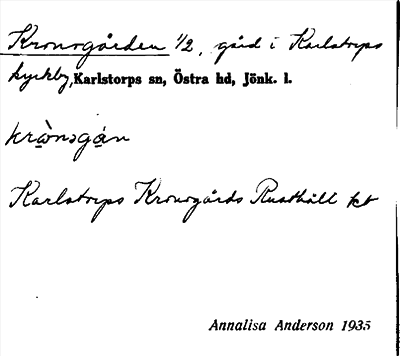 Kronogården 1/2, gård i Karlstorps
kyrkby, Karlstorps sn, Östra hd, Jönk. l.
krònəgán
Karlstorps Kronogårds Rusthåll kt
Annalisa Anderson 1935